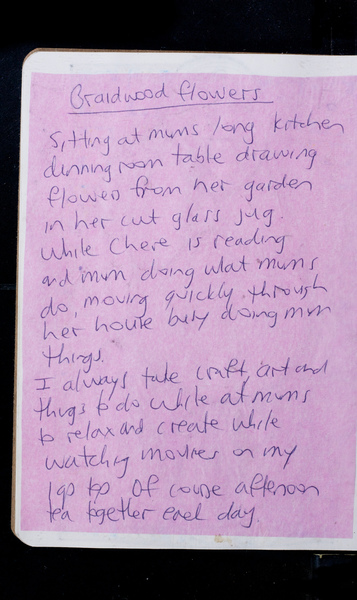 Braidwood flowers
Sitting at mums long kitchen
dinning room table drawing
flowers from her garden
in her cut glass jug.
While Chere is reading
and mum doing what mums
do, moving quickly through
her house busy doing mum
things.
I always take craft, art and
things to do while at mums
to relax and create while
watching movies on my
lap top Of course afternoon
tea together each day.